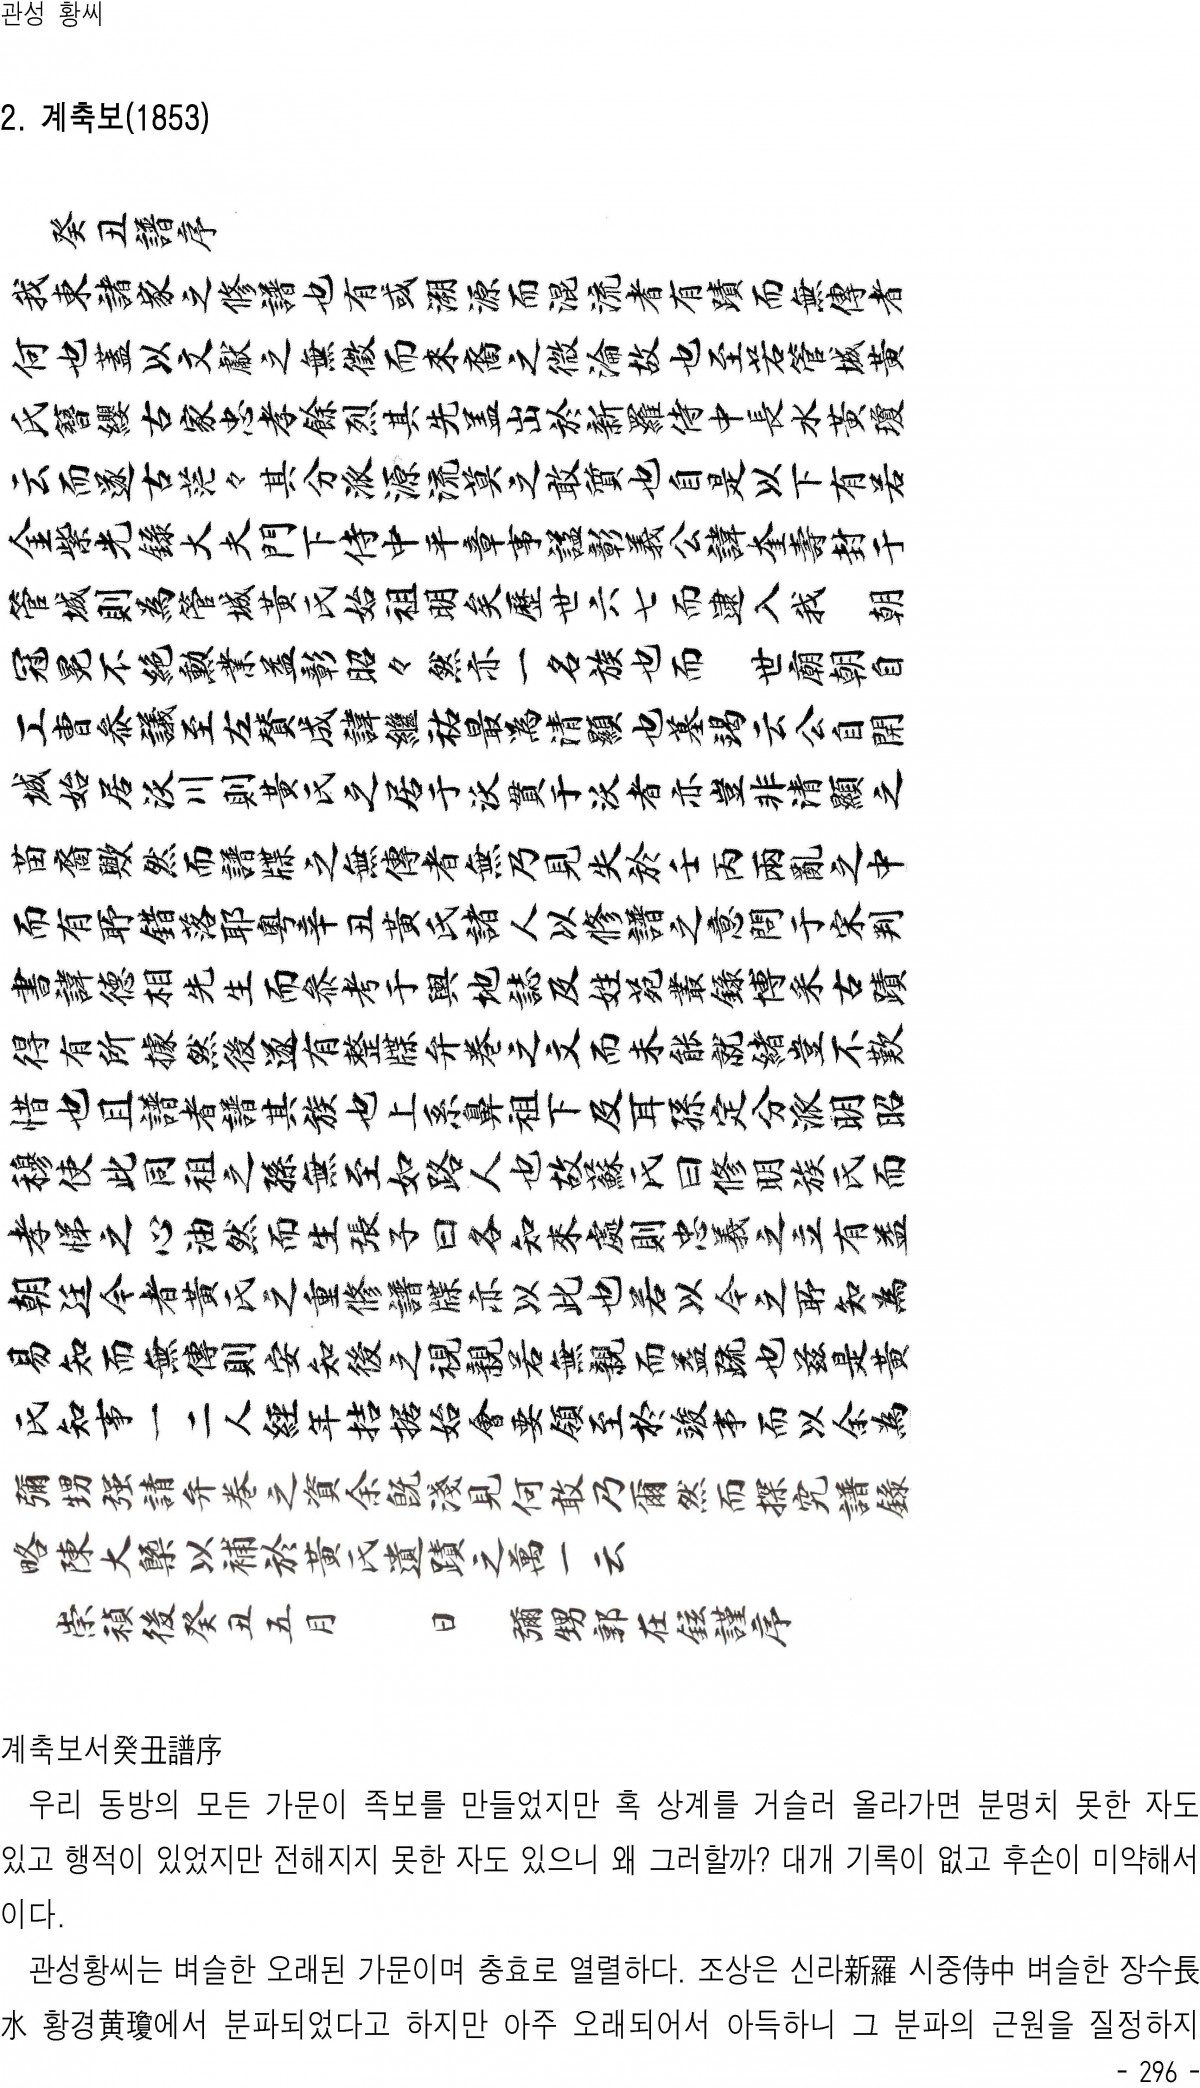 관성 황씨
2. 계축보(1853)
癸丑譜序
我東諸家之修譜也有或溯源而混流者有蹟而無傳者
何也蓋以文獻之無徵而來裔之微淪故也至若管城黃
氏簪纓古家忠孝餘烈其先盖出於新羅侍中長水黃瓊
云而邃古茫々其分派源流莫之敢質也自是以下有若
金紫光錄大夫門下侍中平章事謚彰義公諱奎壽封于
管城則為管城黃氏始祖明矣歷世六七而逮入我 朝
冠冕不絶勳業益彰昭々然亦一名族也而 世廟朝自
工曹叅議至左賛成諱繼祐最為清顯也墓謁云公自開
城始居沃川則黃氏之居于沃貫于沃者亦豈非清顯之
苗裔歟然而譜牒之無傳者無乃見失於壬丙兩亂之中
而有所錯落耶粤辛丑黃氏諸人以修譜之意問于宋判
書諱德相先生而叅考于輿地誌及姓苑叢錄博采古蹟
得有所據然後遂有整牒弁卷之文而未能就緒豈不歎
惜也且譜者譜其族也上系鼻祖下及耳孫定分派明昭
穆使此同祖之孫無至如路人也故蘇氏曰修明族氏而
孝悌之心油然而生張子曰各知來處則忠義之立有益
朝廷今者黃氏之重修譜牒亦以此也若以今之所知為
易知而無傳則安知後之視親若無親而益疏也玆是黃
氏知事一二人經年拮据始會要領至於竣事而以余為
彌甥强請弁卷之資余旣淺見何敢乃爾然而探究譜錄
略陳大槩以補於黃氏遺蹟之萬一云
崇禎後癸丑五月 日 彌甥郭在鉉謹序
계축보서癸丑譜序
우리 동방의 모든 가문이 족보를 만들었지만 혹 상계를 거슬러 올라가면 분명치 못한 자도
있고 행적이 있었지만 전해지지 못한 자도 있으니 왜 그러할까? 대개 기록이 없고 후손이 미약해서
이다.
관성황씨는 벼슬한 오래된 가문이며 충효로 열렬하다. 조상은 신라新羅 시중侍中 벼슬한 장수長
水 황경黄瓊에서 분파되었다고 하지만 아주 오래되어서 아득하니 그 분파의 근원을 질정하지
- 296 -